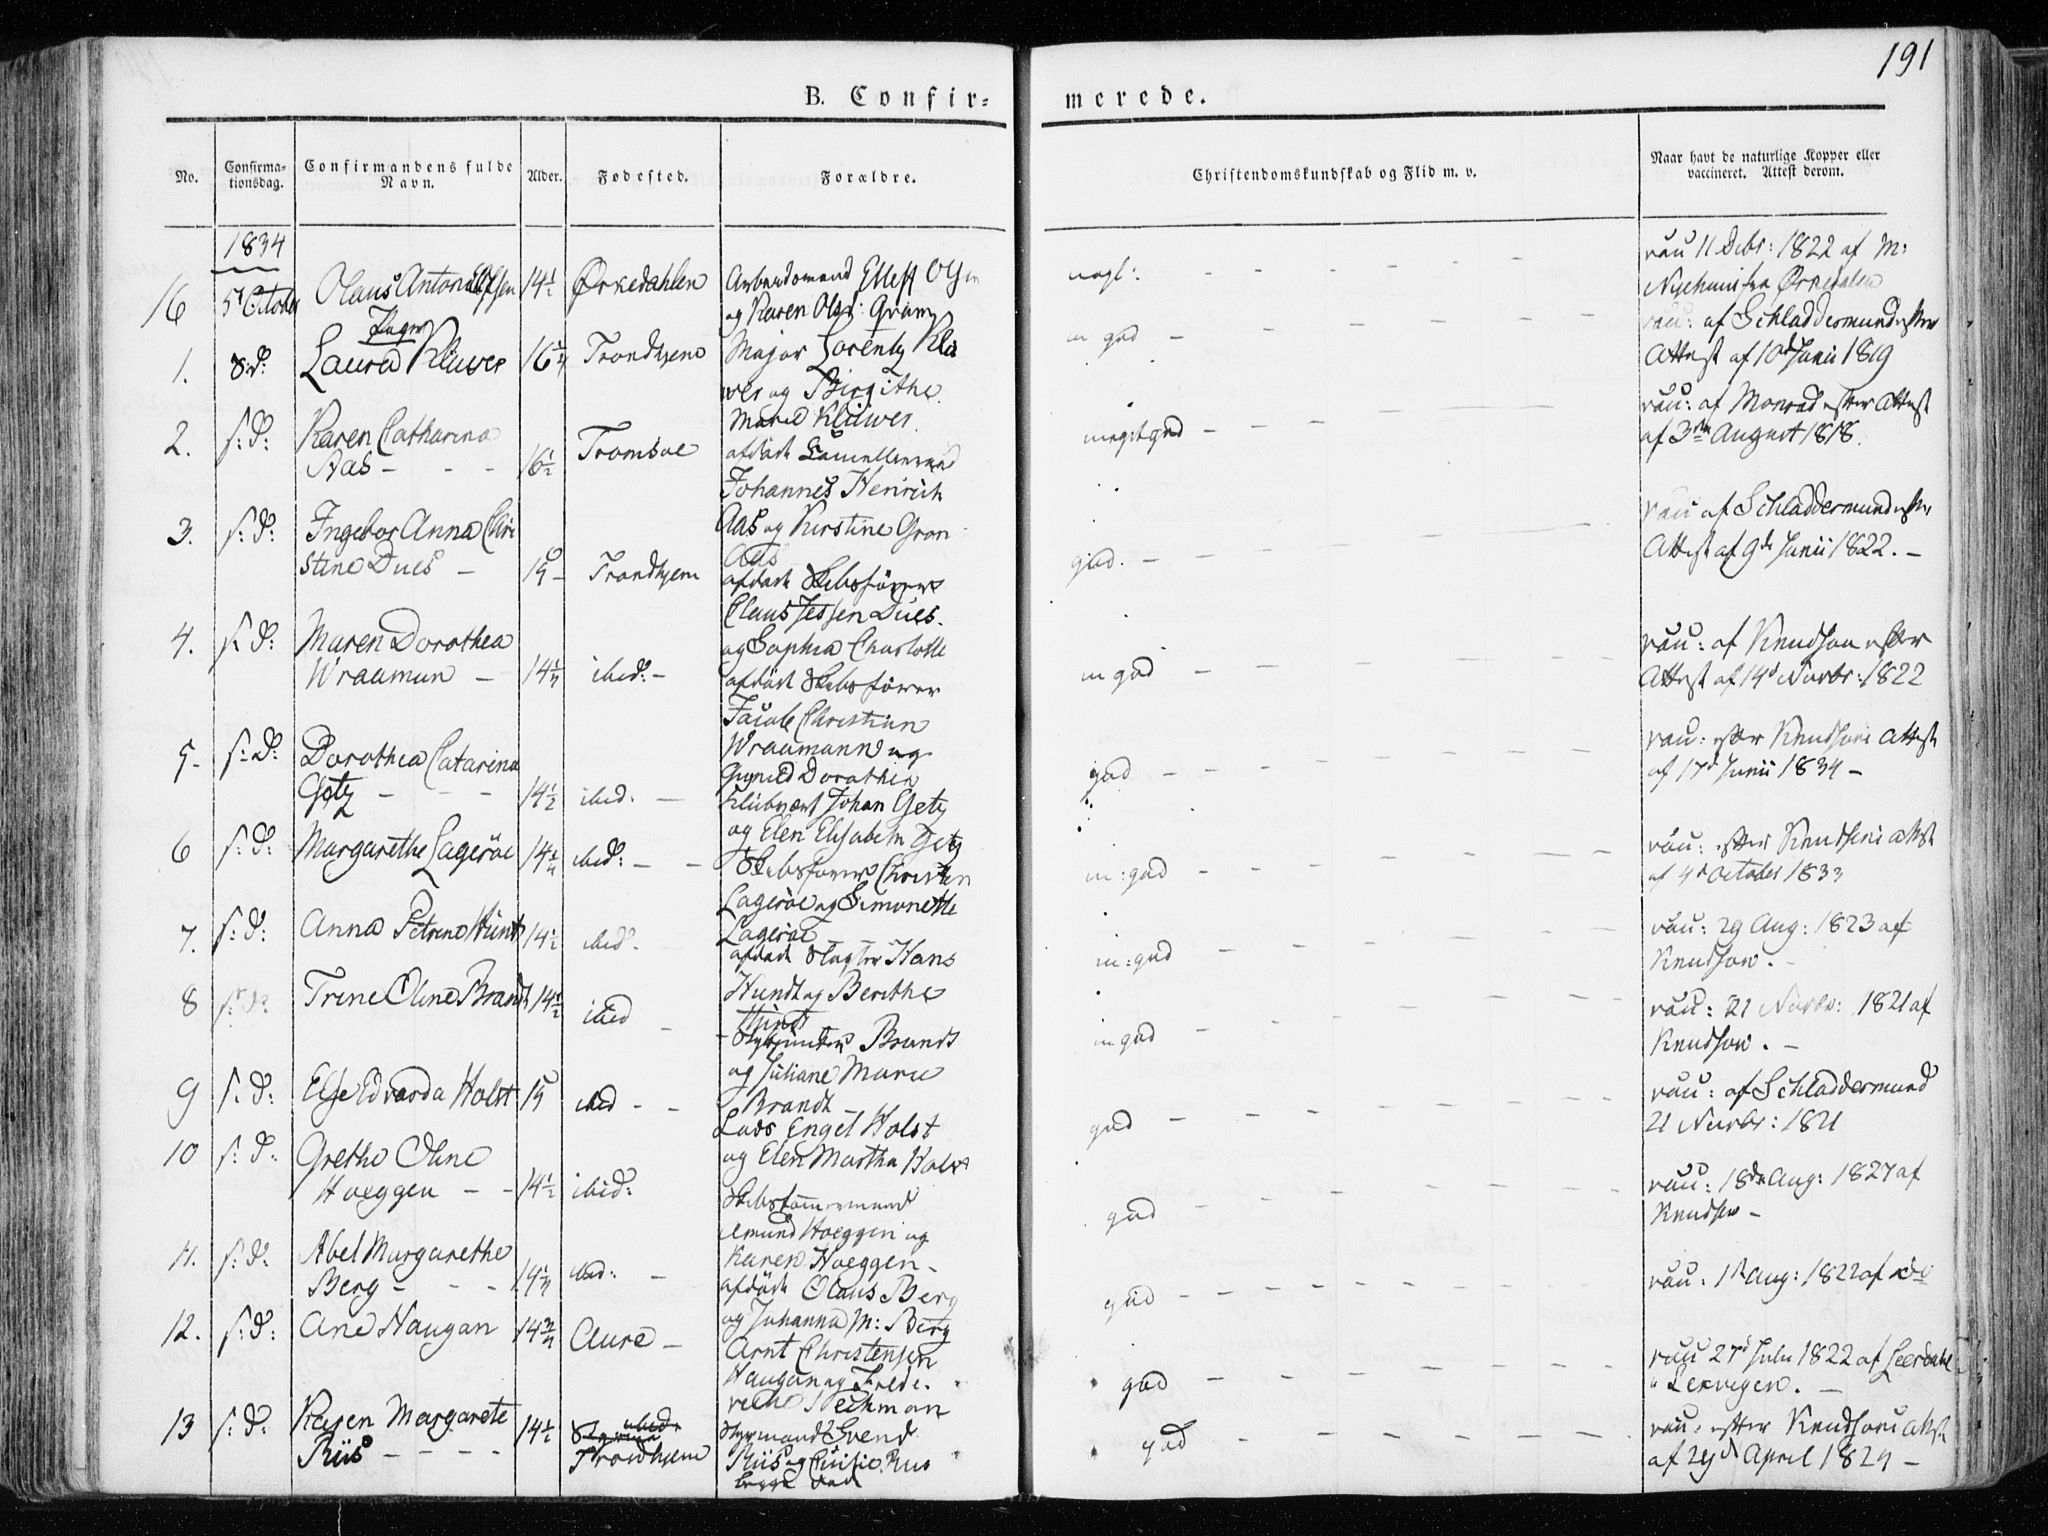 191
B. Confir=
merede.
No.
Confirma-
tionsdag.
Confirmandens fulde
Navn.
Alder.
Fødested.
Forældre.
Christendomskundskab og Flid m. v.
Naar havt de naturlige Kopper eller
vaccineret. Attest derom.
1834
16 5t October Olaus Anton Ellefsen 14½ Ørkedahlen Arbeidsmand Ellef Olsen
og Karen Olsd: Gram
nogl: - - - - - -
vac 11 Decbr: 1822 af M:
Ørkedalen
Piger
1. s:d: Laura Klüwer 16¼ Trondhjem Major Lorentz Klü
wer og Birgithe
Marie Klüwer.
m god - - - - - -
vac: af Schladdermund efter
Attest af 10d Junii 1819
2. s:d: Karen Catharina
Aas - - - 16½ Tromsøe
afdøde
Johannes Henrich
Aas og Kirstine Gron
Aas
meget god - - - -
vac: af Monrad efter Attest
af 3die August 1818.
3. s:d: Ingebor Anna Chri
stine Dues - 15 - Trondhjem
afdøde Skibsfører
Claus Jessen Dues.
og Sophia Charlotte
god. - - - - -
vac af Schladdermund efter
Attest af 9de Junii 1822. -
4. s:d: Maren Dorothea
Wraamun - 14¼ ibid: -
afdøde Skibsfører
Jacob Christian
Wraamann og
Dorothea
m god - - - - -
vac: af Knudson efter
Attest af 14d Novbr: 1822
5. s:d: Dorothea Catarina
Getz - - - 14½ ibid. -
Klubvært Johan Getz
og Elen Elisabeth Getz
god - - - - -
vac: efter Knudsons Attest
af 17d Junii 1834 -
6 s:d: Margarethe Lagerøe 14¼ ibid: - -
Skibsfører Christen
Lagerøe og Simonette
Lagerøe
m: god - - - - -
vac: efter Knudsons attest
af 4d October 1833
7. s:d: Anna Petrine Hunt 14½ ibid.
afdøde Slagter Hans
Hundt og Berithe
Hunt
m: god - - - - -
vac: 29 Aug: 1823 af
Knudson. -
8 s:d: Trine Oline Brandt 14½ ibid -
Brandt
og Juliane Marie
Brandt -
m god - - - - -
vac: 21 Novbr: 1821 af
Knudson. -
9 s:d: Else Edvarda Holst 15 ibid - -
Lars Engel Holst
og Elen Martha Holst
god - - - - -
vac: af Schladdermund
21 Novbr: 1821
10 s:d: Grethe Oline
Hoeggen - - 14½ ibid:
Skibstømmermand
Hoeggen og
Karen Hoeggen -
god - - - - -
vac: 18de Aug: 1827 af
Knudson -
11. s:d: Abel Margarethe
Berg - - - 14¼ ibid: -
afdøde Olaus Berg
og Johanna M: Berg
god - - - - -
vac. 1st Aug: 1822 af do
12. s:d: Ane Haugan 14¾ Aure -
Arnt Christensen
Haugan og Frede-
god - - - - -
vac 27d Julii 1822 af
Lexvigen. -
13 s:d: Karen Margarete
Riis - - - - 14½ Trondhjem
Styrmand Svend
Riis og Riis
begge død
god - - - - -
vac. efter Knudsons attest
af 29d April 1824 -